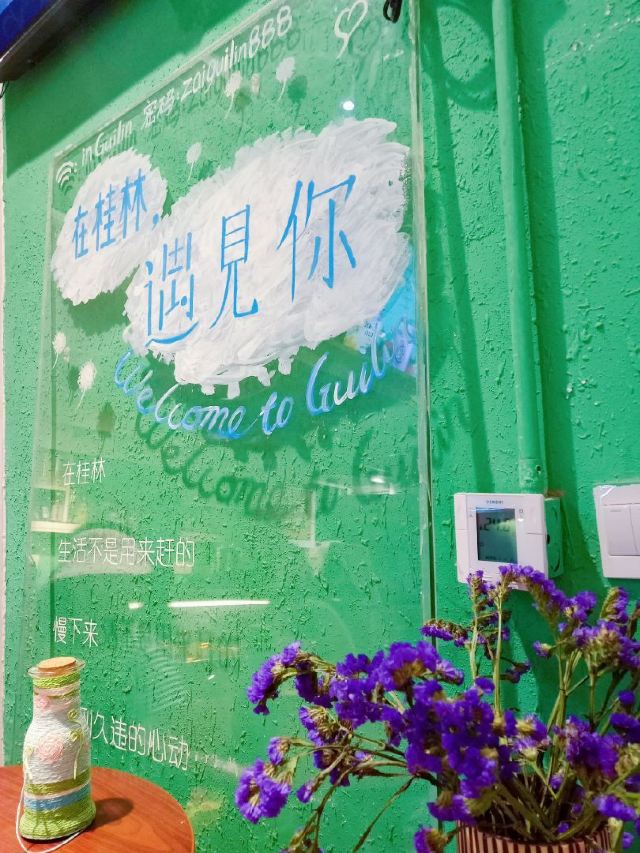 : In Guilin 密码:zaiguilin888
在桂林,
遇見你
Welcome to Guilin
在桂林
生活不是用来赶的
慢下来
久违的心动……